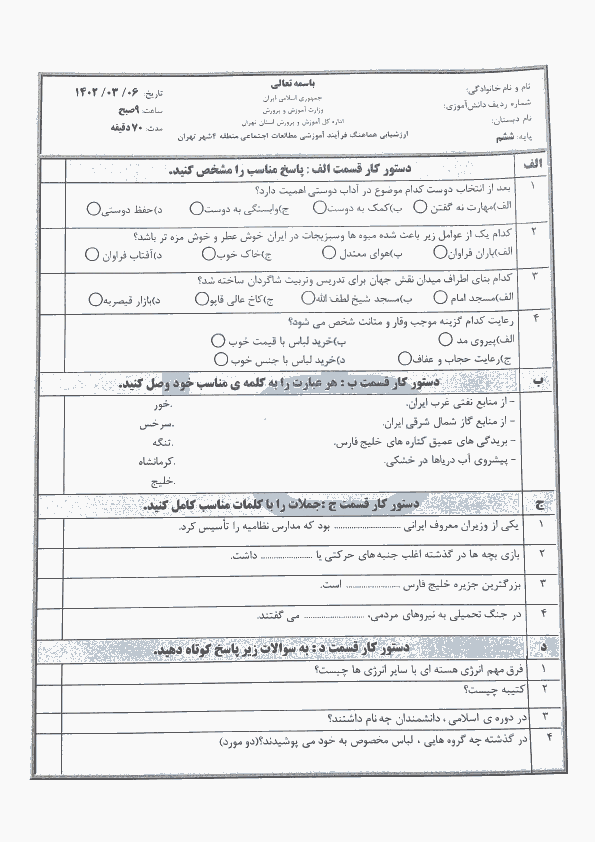 باسمه تعالی
جمهوری اسلامی ایران
وزارت آموزش و پرورش
اداره کل آموزش و پرورش استان تهران
ارزشیابی هماهنگ فرآیند آموزشی مطالعات اجتماعی منطقه ۴شهر تهران
نام و نام خانوادگی:
شماره ردیف دانش‌آموزی:
نام دبستان:
پایه: ششم
تاریخ: ۰۶ /۰۳ /۱۴۰۲
ساعت: ۹صبح
مدت: ۷۰دقیقه
الف دستور کار قسمت الف : پاسخ مناسب را مشخص کنید.
۱ بعد از انتخاب دوست کدام موضوع در آداب دوستی اهمیت دارد؟
الف)مهارت نه گفتن ب)کمک به دوست ج)وابستگی به دوست د)حفظ دوستی
۲ کدام یک از عوامل زیر باعث شده میوه ها وسبزیجات در ایران خوش عطر و خوش مزه تر باشد؟
الف)باران فراوان ب)هوای معتدل ج)خاک خوب د)آفتاب فراوان
۳ کدام بنای اطراف میدان نقش جهان برای تدریس وتربیت شاگردان ساخته شد؟
الف)مسجد امام ب)مسجد شیخ لطف الله ج)کاخ عالی قاپو د)بازار قیصریه
۴ رعایت کدام گزینه موجب وقار و متانت شخص می شود؟
الف)پیروی مد ب)خرید لباس با قیمت خوب
ج)رعایت حجاب و عفاف د)خرید لباس با جنس خوب
ب دستور کار قسمت ب : هر عبارت را به کلمه ی مناسب خود وصل کنید.
– از منابع نفتی غرب ایران. .خور
– از منابع گاز شمال شرقی ایران. .سرخس
– بریدگی های عمیق کناره های خلیج فارس. .تنگه
– پیشروی آب دریاها در خشکی. .کرمانشاه
.خلیج
ج دستور کار قسمت ج :جملات را با کلمات مناسب کامل کنید.
۱ یکی از وزیران معروف ایرانی ........................ بود که مدارس نظامیه را تأسیس کرد.
۲ بازی بچه ها در گذشته اغلب جنبه های حرکتی یا .................... داشت.
۳ بزرگترین جزیره خلیج فارس .................... است.
۴ در جنگ تحمیلی به نیروهای مردمی، ...................... می گفتند.
د دستور کار قسمت د : به سوالات زیر پاسخ کوتاه دهید.
۱ فرق مهم انرژی هسته ای با سایر انرژی ها چیست؟
۲ کتیبه چیست؟
۳ در دوره ی اسلامی ، دانشمندان چه نام داشتند؟
۴ در گذشته چه گروه هایی ، لباس مخصوص به خود می پوشیدند؟(دو مورد)